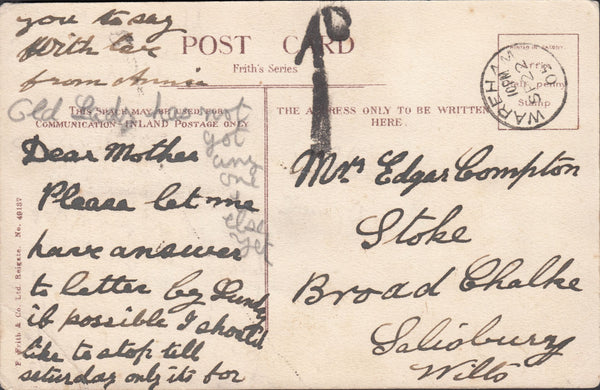 you to say
With love
from Annie
POST CARD
Frith's Series
Old Lady has not
got
any
one
else
yet
THIS SPACE MAY BE USED FOR
COMMUNICATION INLAND POSTAGE ONLY
Dear Mother
Please let me
have answer
to letter by Sunday
if possible I should
like to stop till
saturday only its for
F. Frith & Co. Ltd. Reigate. No. 49187
THE ADDRESS ONLY TO BE WRITTEN
HERE.
1D
WAREHAM
Stamp
Mrs Edgar Compton
Stoke
Broad Chalke
Salisbury
Wilts